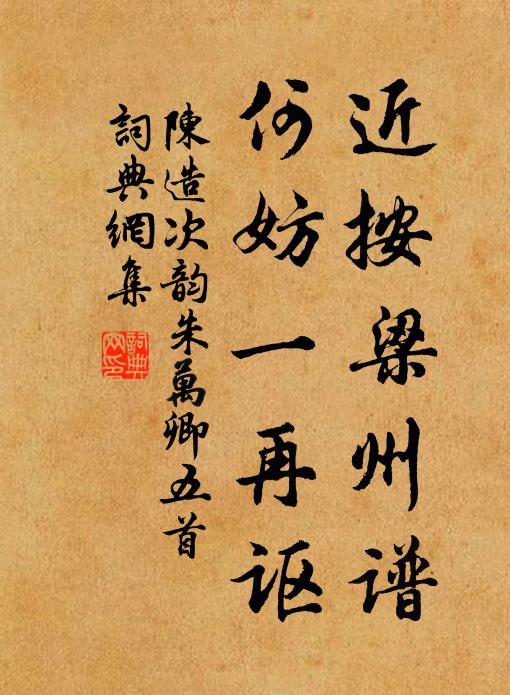 近按梁州谱
何妨一再讴
陳造次韵朱萬卿五首
詞典網集
詞典网印